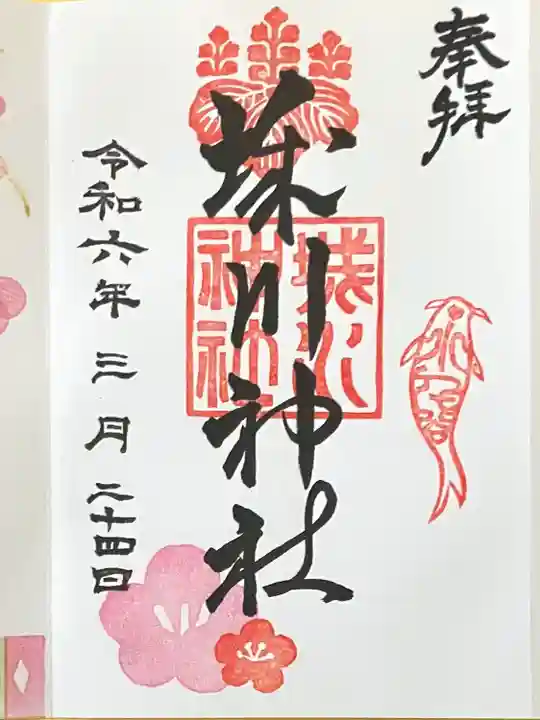 奉拝
城川神社
城川
神社
令和六年三月二十四日